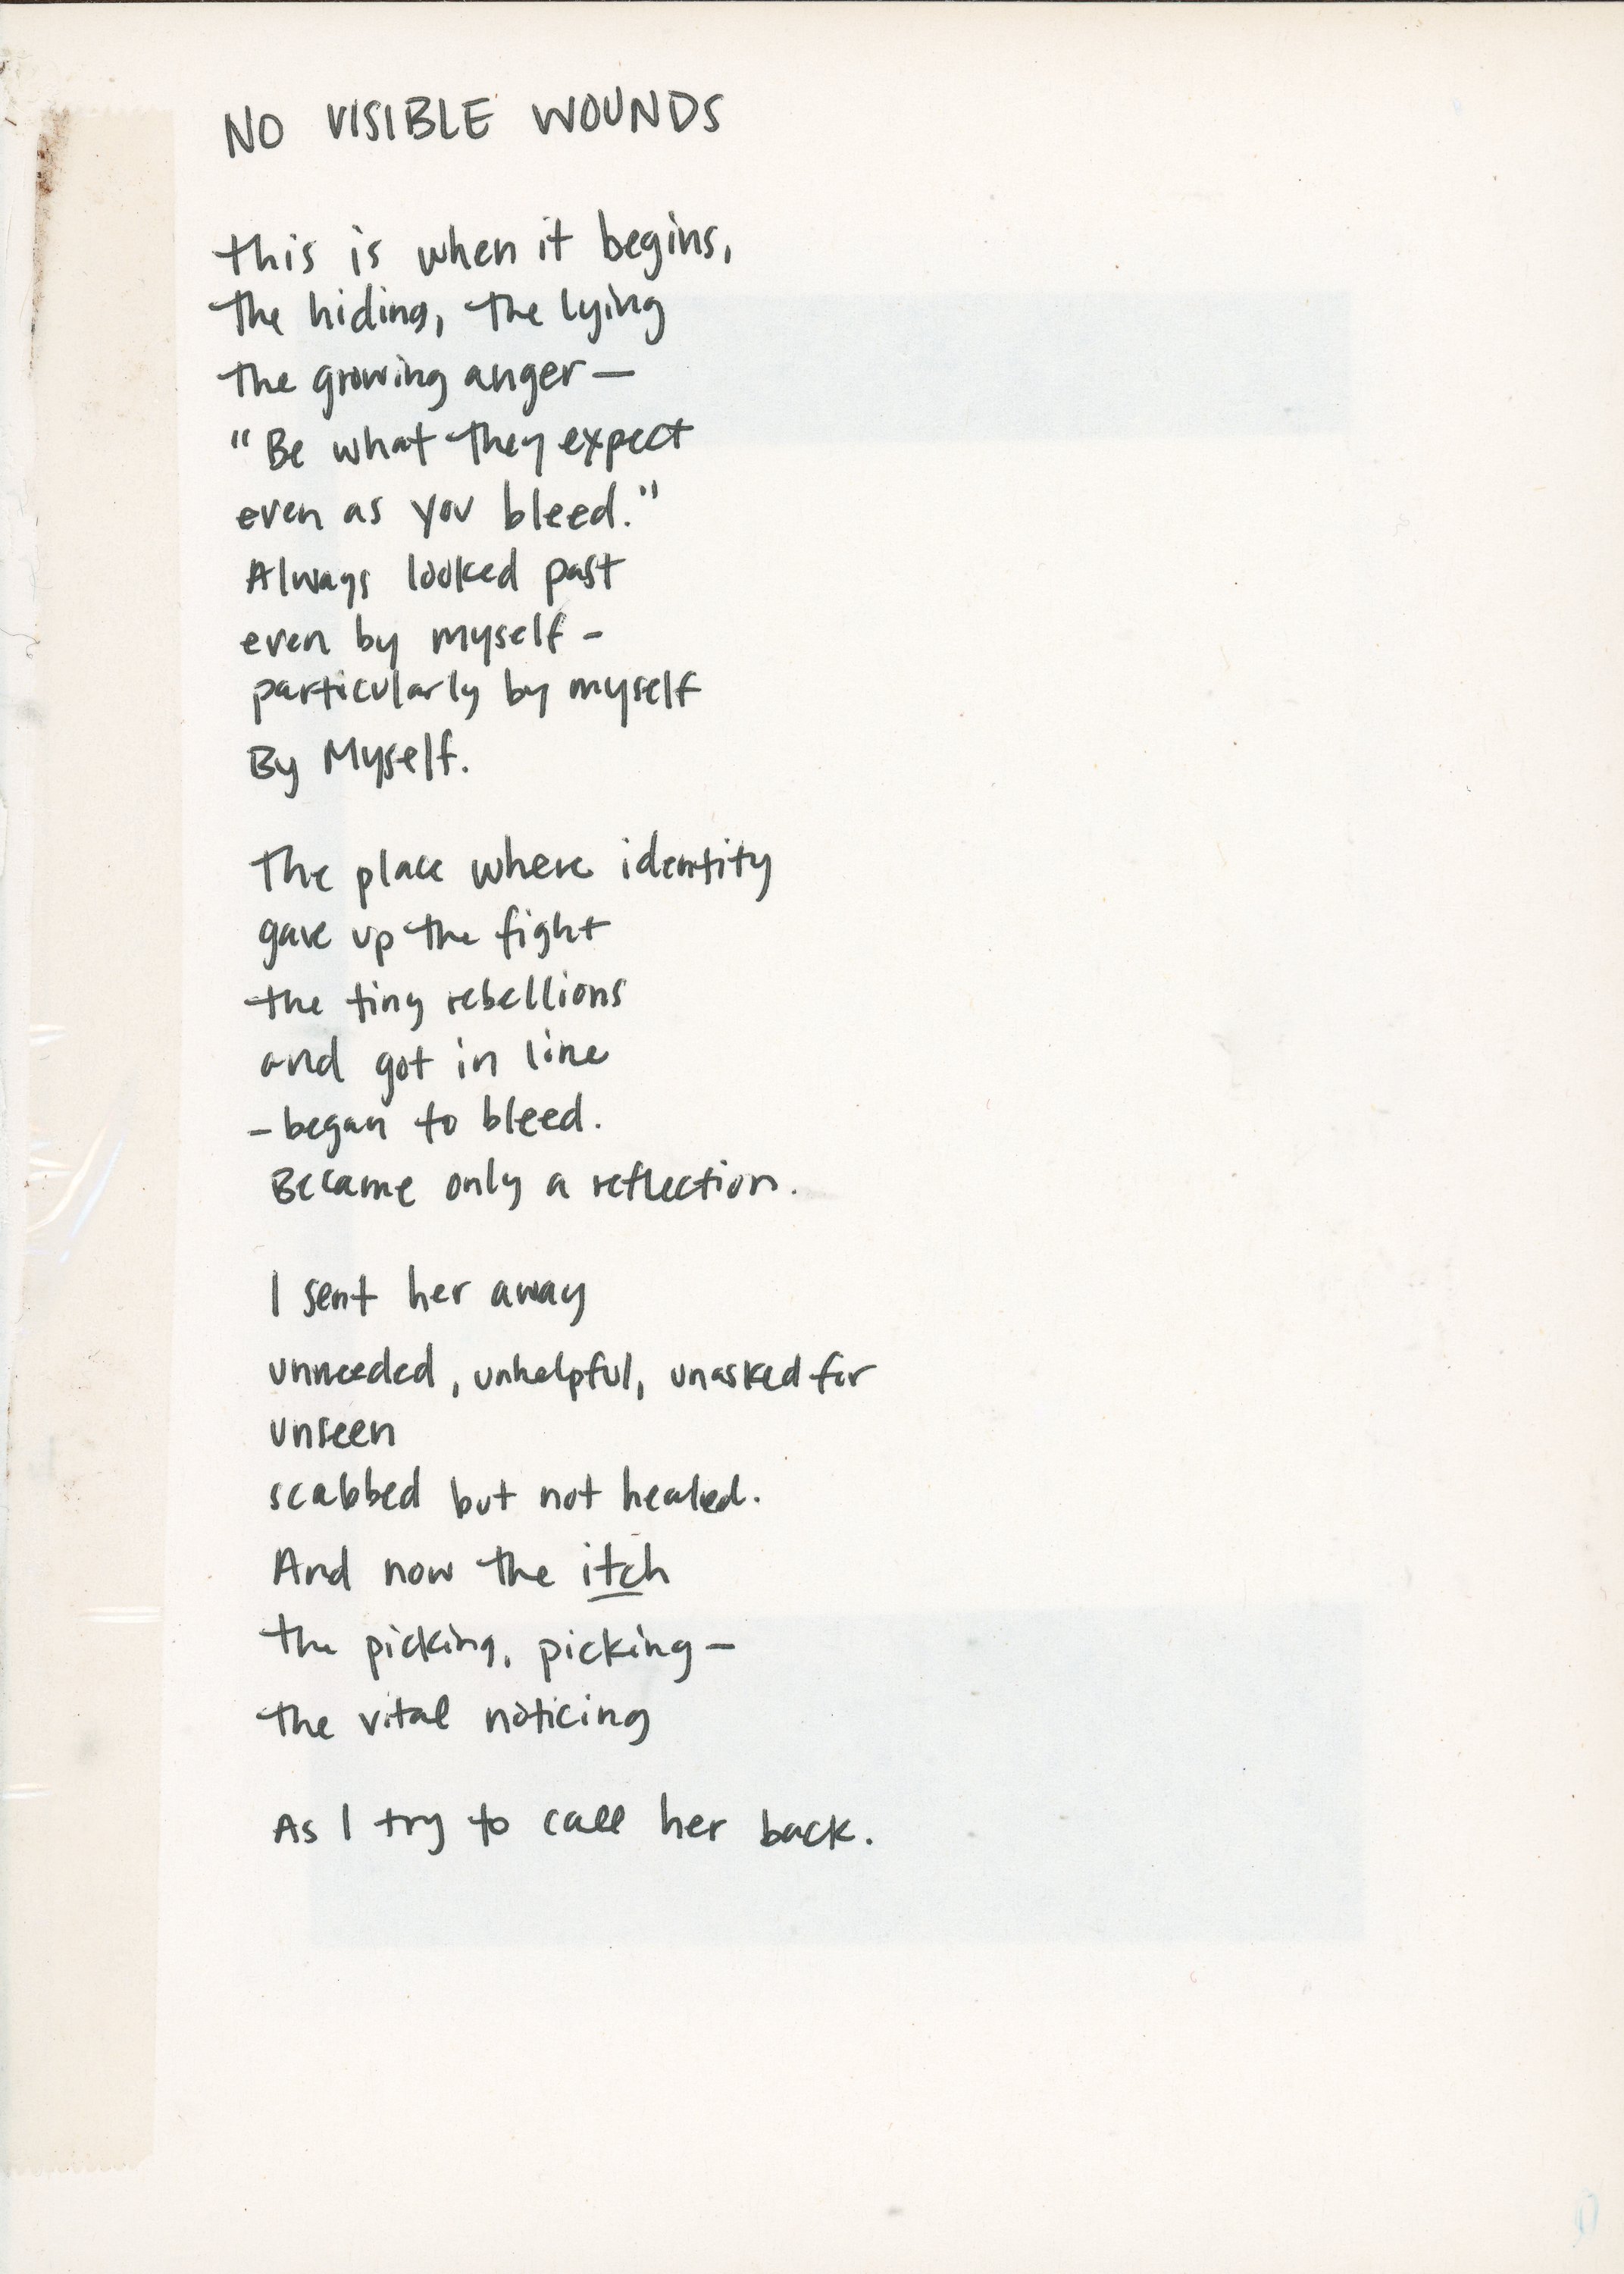 NO VISIBLE WOUNDS
this is when it begins,
the hiding, the lying
the growing anger—
"Be what they expect
even as you bleed."
Always looked past
even by myself -
particularly by myself
By Myself.
The place where identity
gave up the fight
the tiny rebellions
and got in line
- began to bleed.
Became only a reflection.
I sent her away
unneeded, unhelpful, unasked for
unseen
scabbed but not healed.
And now the itch
the picking, picking—
the vital noticing
As I try to call her back.